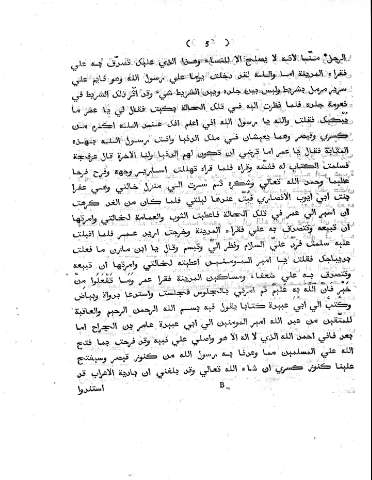 ( ٥ )
الرجل منقبا لانه لا يصلح الا للنساء وهذا الذي عليك تصرف به علي
فقراء المدينة اما والله لقد دخلت يوما علي رسول الله وهو قايم علي
سرير مرمل بشريط وليس بين جلده وبين الشريط شيء وقد اثر ذلك الشريط في
نعومة جلده فلما نظرت اليه في تلك الحالة بكيت فقال لي يا عمر ما
يبكيك فقلت والله يا رسول الله اني اعلم انك عند الله اكرم من
كسري وقيصر وهما يعيشان في ملك الدنيا وانت رسول الله بهذه
المثابة فقال يا عمر اما ترضي ان تكون لهم الدنيا ولنا الاخرة قال عرفجة
فسلمت الكتاب له ففضه وقراه فلما قراه تهللت اسارير وجهه وفرح فرحا
عظيما وحمد الله تعالي وشكره ثم سرت الي منزل خالتي وهي عفرا
بنت ابي ايوب الانصاري فبت عندها ليلتي فلما كان من الغد كرهت
ان اسير الي عمر في تلك الحالة فاعطيت الثوب والعمامة لخالتي وامرتها
ان تبيعه وتتصرف به علي فقراء المدينة وخرجت اريد عمر فلما اقبلت
عليه سلمت فرد علي السلام ونظر الي وتبسم وقال يا ابن مازن ما فعلت
بديباجك فقلت يا امير المومنين اعطيته لخالتي وامرتها ان تبيعه
وتتصرف به علي ضعفاء ومساكين المدينة فقرا عمر وما تفعلوا من
خير فان الله به عليم ثم امرني بالجلوس فجلست واستدعا بدواة وبياض
وكتب الي ابي عبيدة كتابا يقول فيه بسم الله الرحمن الرحيم والعاقبة
للمتقين من عبد الله امير المومنين الي ابي عبيدة عامر بن الجراح اما
بعد فاني احمد الله الذي لا اله الا هو واصلي علي نبيه وقد فرحت بما فتح
الله علي المسلمين مما وعدنا به رسول الله من كنوز قيصر وسيفتح
علينا كنوز كسري ان شاء الله تعالي وقد بلغني ان بادية الاعراب قد
B
استلذوا